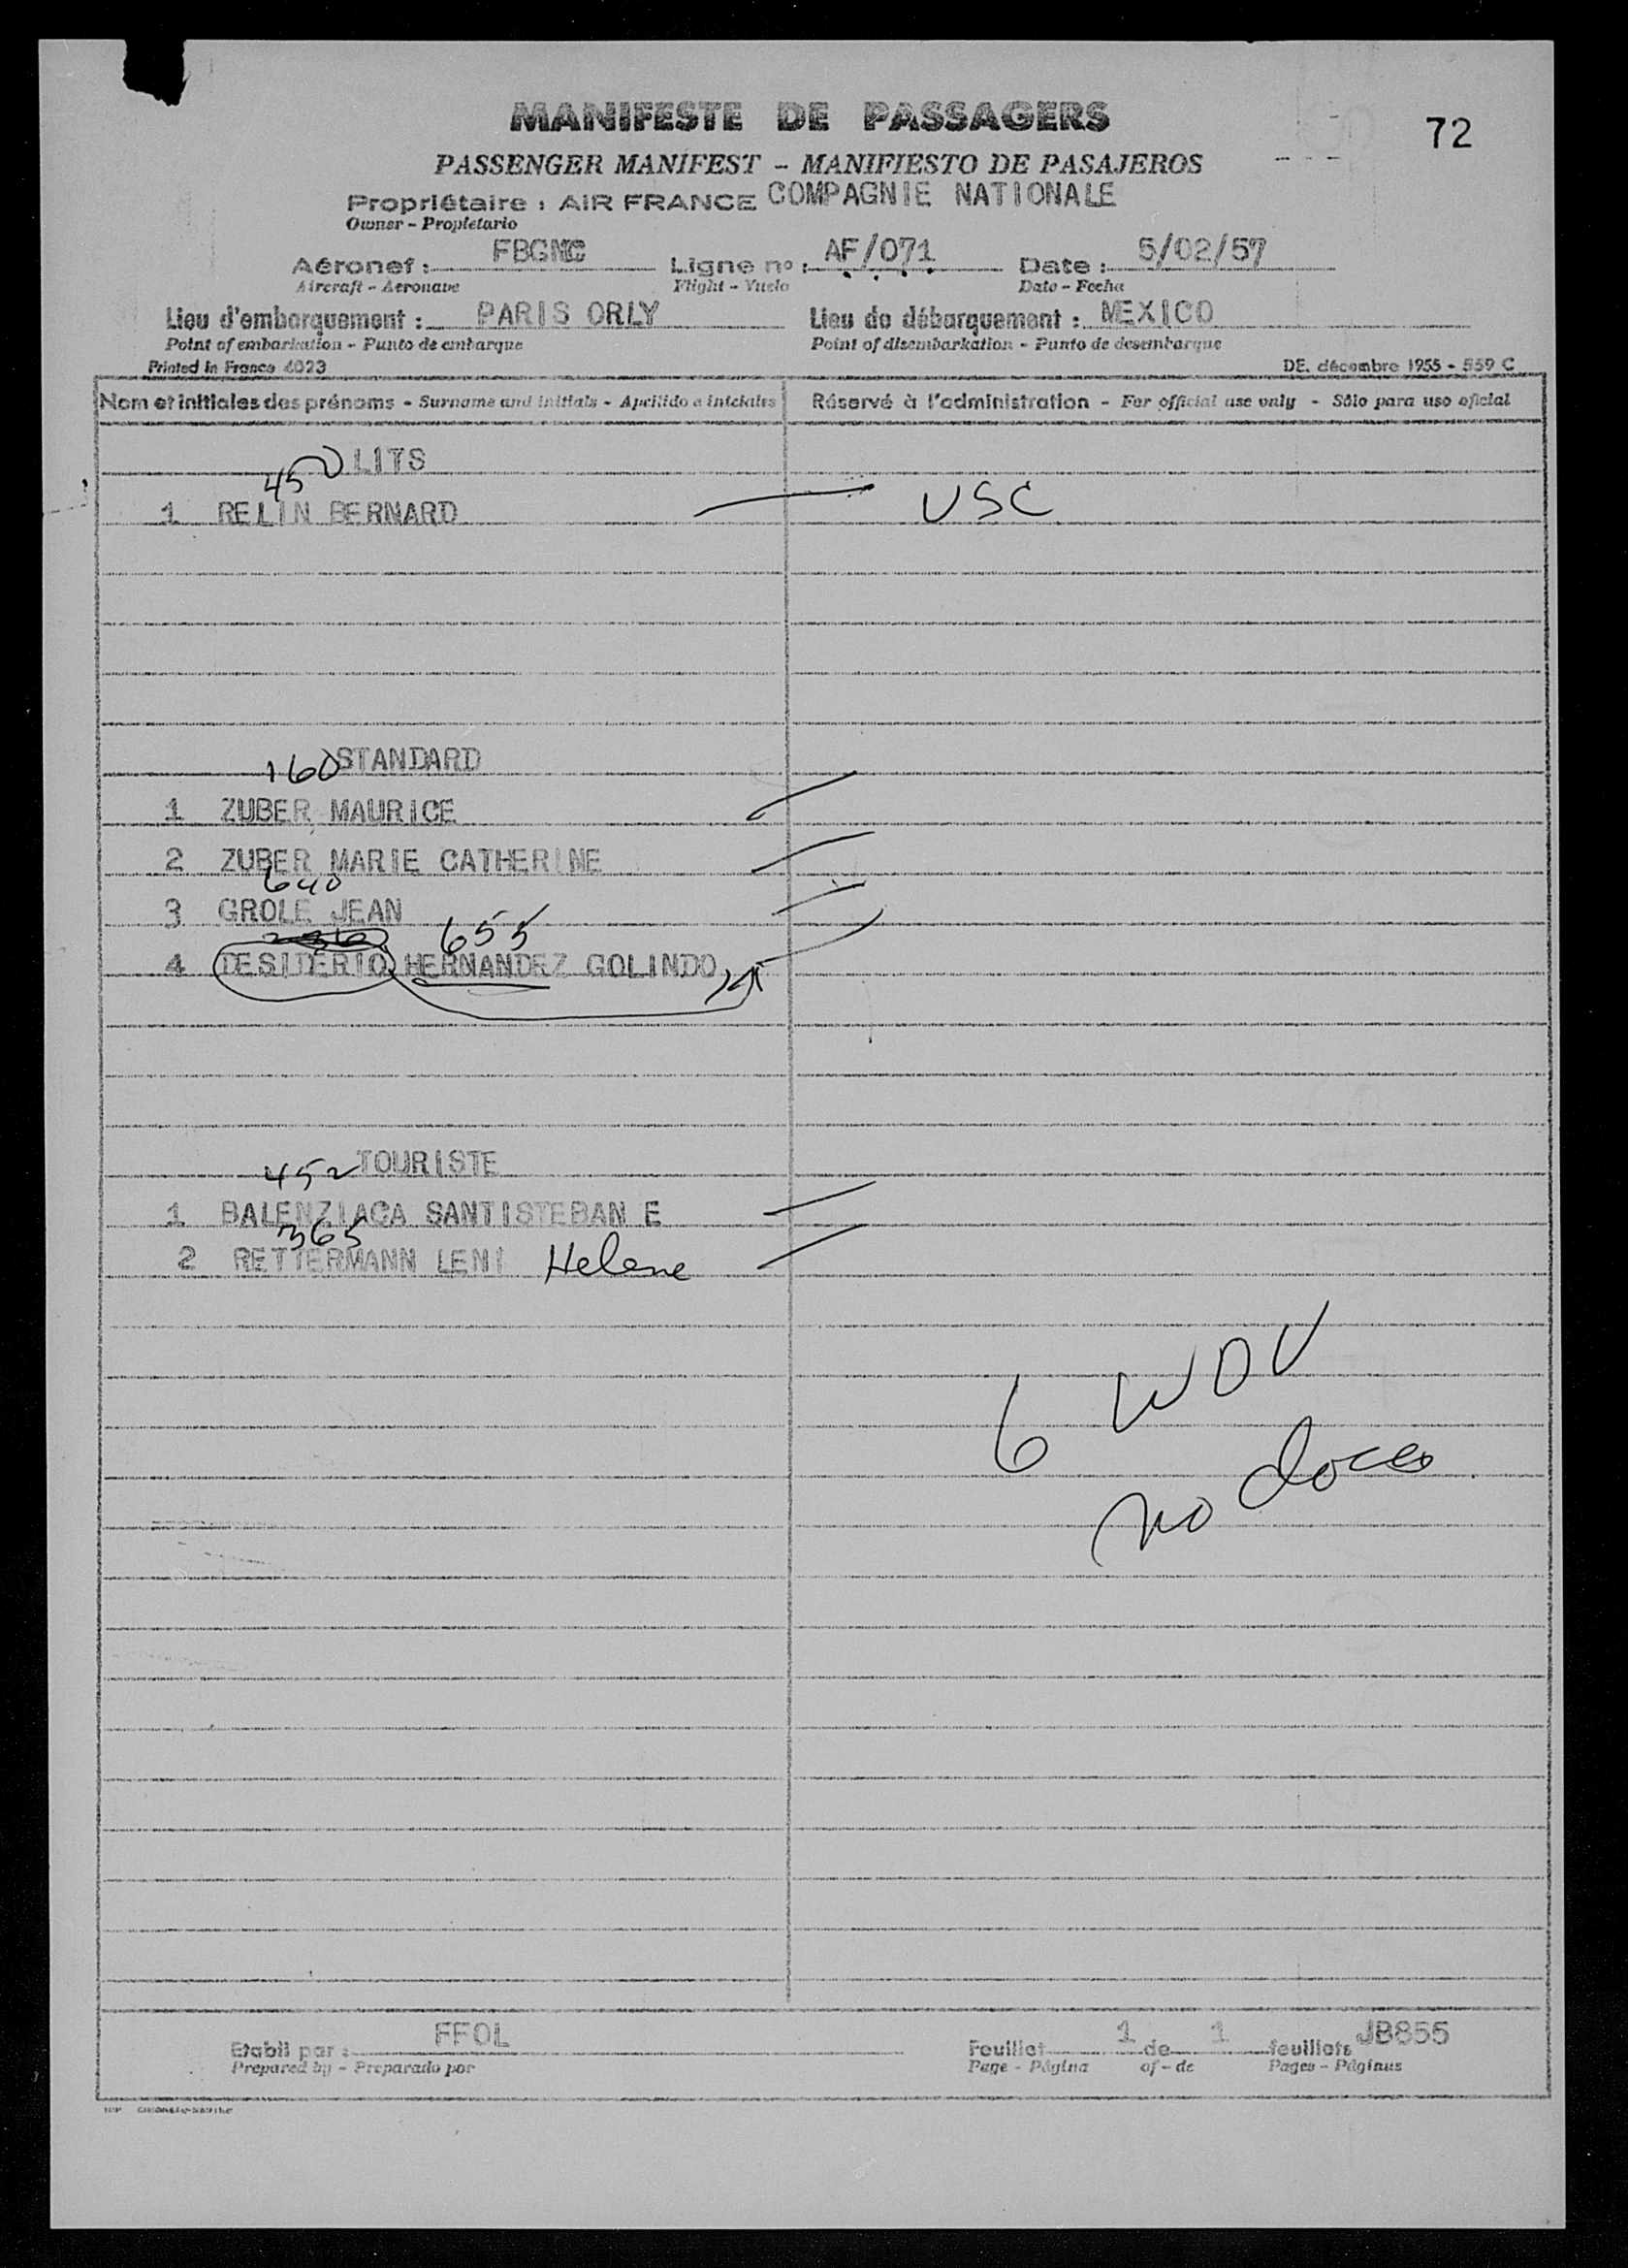 MANIFESTE DE PASSAGERS
72
PASSENGER MANIFEST - MANIFIESTO DE PASAJEROS
Propriétaire : AIR FRANCE COMPAGNIE NATIONALE
Owner - Propietario
Aéronef : FBGNC Ligne no : AF/071 Date : 5/02/57
Aircraft - Aeronave Flight - Vuelo Date - Fecha
Lieu d'embarquement : PARIS ORLY Lieu de débarquement : MEXICO
Point of embarkation - Punto de embarque Point of disembarkation - Punto de desembarque
Printed in France 4023 DE. décembre 1955 - 559 C
Nom et initiales des prénoms - Surname and initials - Apellido e iniciales Réservé à l'administration - For official use only - Sólo para uso oficial
LITS
450
1 RELIN BERNARD USC
160 STANDARD
1 ZUBER MAURICE
2 ZUBER MARIE CATHERINE
640
3 GROLE JEAN
655
4 DESIDERIO HERNANDEZ GOLINDO
452 TOURISTE
1 BALENZIAGA SANTISTEBAN E
365
2 RETTERMANN LENI Helene
6 WOV
no docs
Etabli par : FFOL Feuillet 1 de 1 feuillets JB855
Prepared by - Preparado por Page - Página of - de Pages - Páginas